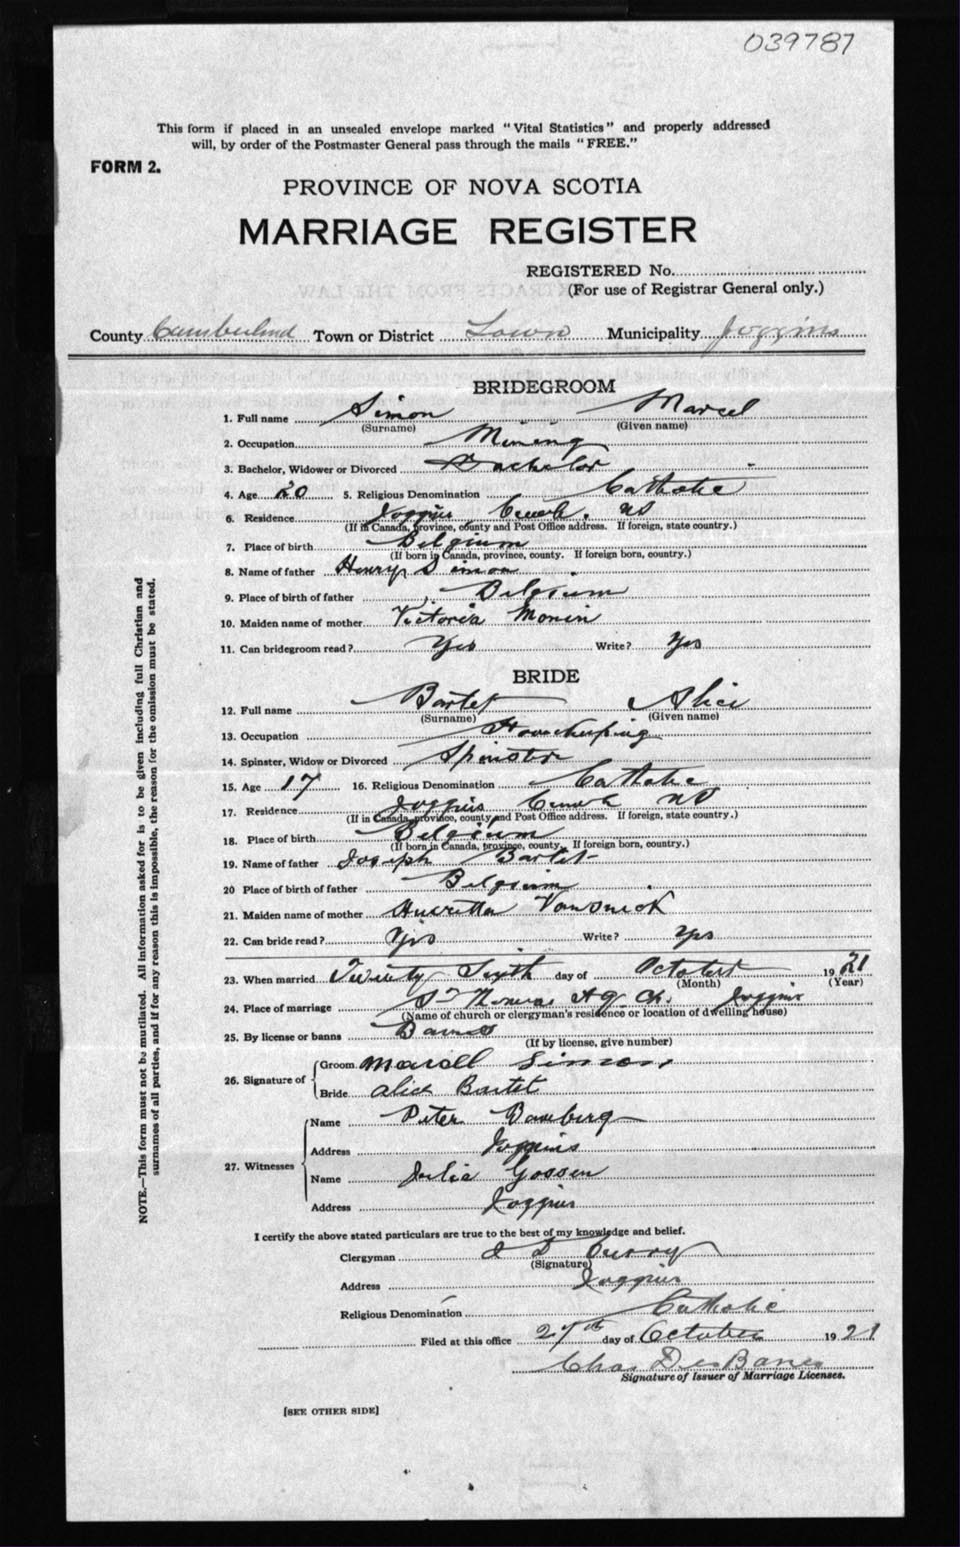 039787
This form if placed in an unsealed envelope marked "Vital Statistics" and properly addressed
will, by order of the Postmaster General pass through the mails "FREE."
FORM 2.
PROVINCE OF NOVA SCOTIA
MARRIAGE REGISTER
REGISTERED No.
(For use of Registrar General only.)
County Cumberlnd Town or District Town Municipality Joggins
BRIDEGROOM
1. Full name Simon Marcel
(Surname) (Given name)
2. Occupation Mining
3. Bachelor, Widower or Divorced Bachelor
4. Age 20 5. Religious Denomination Catholic
6. Residence Joggins NS
(If in Canada, province, county and Post Office address. If foreign, state country.)
7. Place of birth Belgium
(If born in Canada, province, county. If foreign born, country.)
8. Name of father Henry Simon
9. Place of birth of father Belgium
10. Maiden name of mother Victoria Monin
11. Can bridegroom read? Yes Write? Yes
BRIDE
12. Full name Bartet Alice
(Surname) (Given name)
13. Occupation Housekeeping
14. Spinster, Widow or Divorced Spinster
15. Age 17 16. Religious Denomination Catholic
17. Residence Joggins NS
(If in Canada, province, county and Post Office address. If foreign, state country.)
18. Place of birth Belgium
(If born in Canada, province, county. If foreign born, country.)
19. Name of father Joseph Bartet
20 Place of birth of father Belgium
21. Maiden name of mother Henrietta
22. Can bride read? Yes Write? Yes
23. When married Twenty Sixth day of October 1921
(Month) (Year)
24. Place of marriage St Thomas Ch. Joggins
(Name of church or clergyman's residence or location of dwelling house)
25. By license or banns Banns
(If by license, give number)
26. Signature of
Groom Marcell Simon
Bride Alice Bartet
27. Witnesses
Name Peter Bamberg
Address Joggins
Name Julia Gossen
Address Joggins
I certify the above stated particulars are true to the best of my knowledge and belief.
Clergyman Curry
(Signature)
Address Joggins
Religious Denomination Catholic
Filed at this office 27th day of October 1921
Chas DesBarres
Signature of Issuer of Marriage Licenses.
[SEE OTHER SIDE]
NOTE.—This form must not be mutilated. All information asked for is to be given including full Christian and
surnames of all parties, and if for any reason this is impossible, the reason for the omission must be stated.